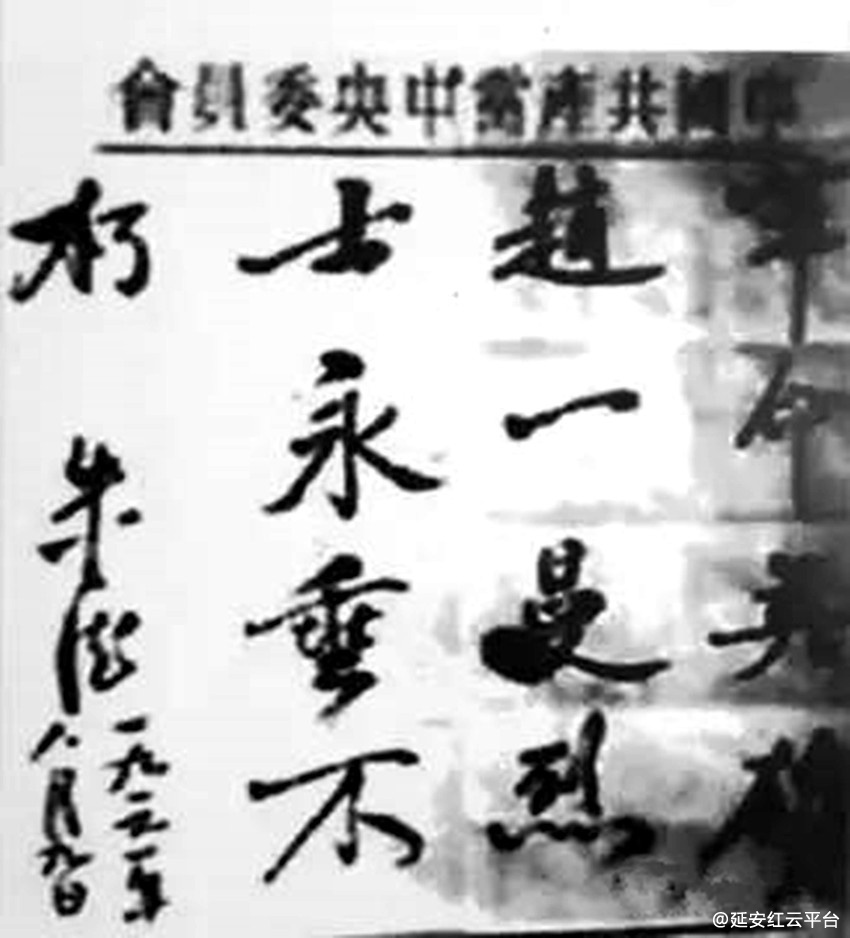 中國共產黨中央委員會
革命英雄
趙一曼烈
士永垂不
朽
朱德
一九六一年
八月九日
@延安红云平台